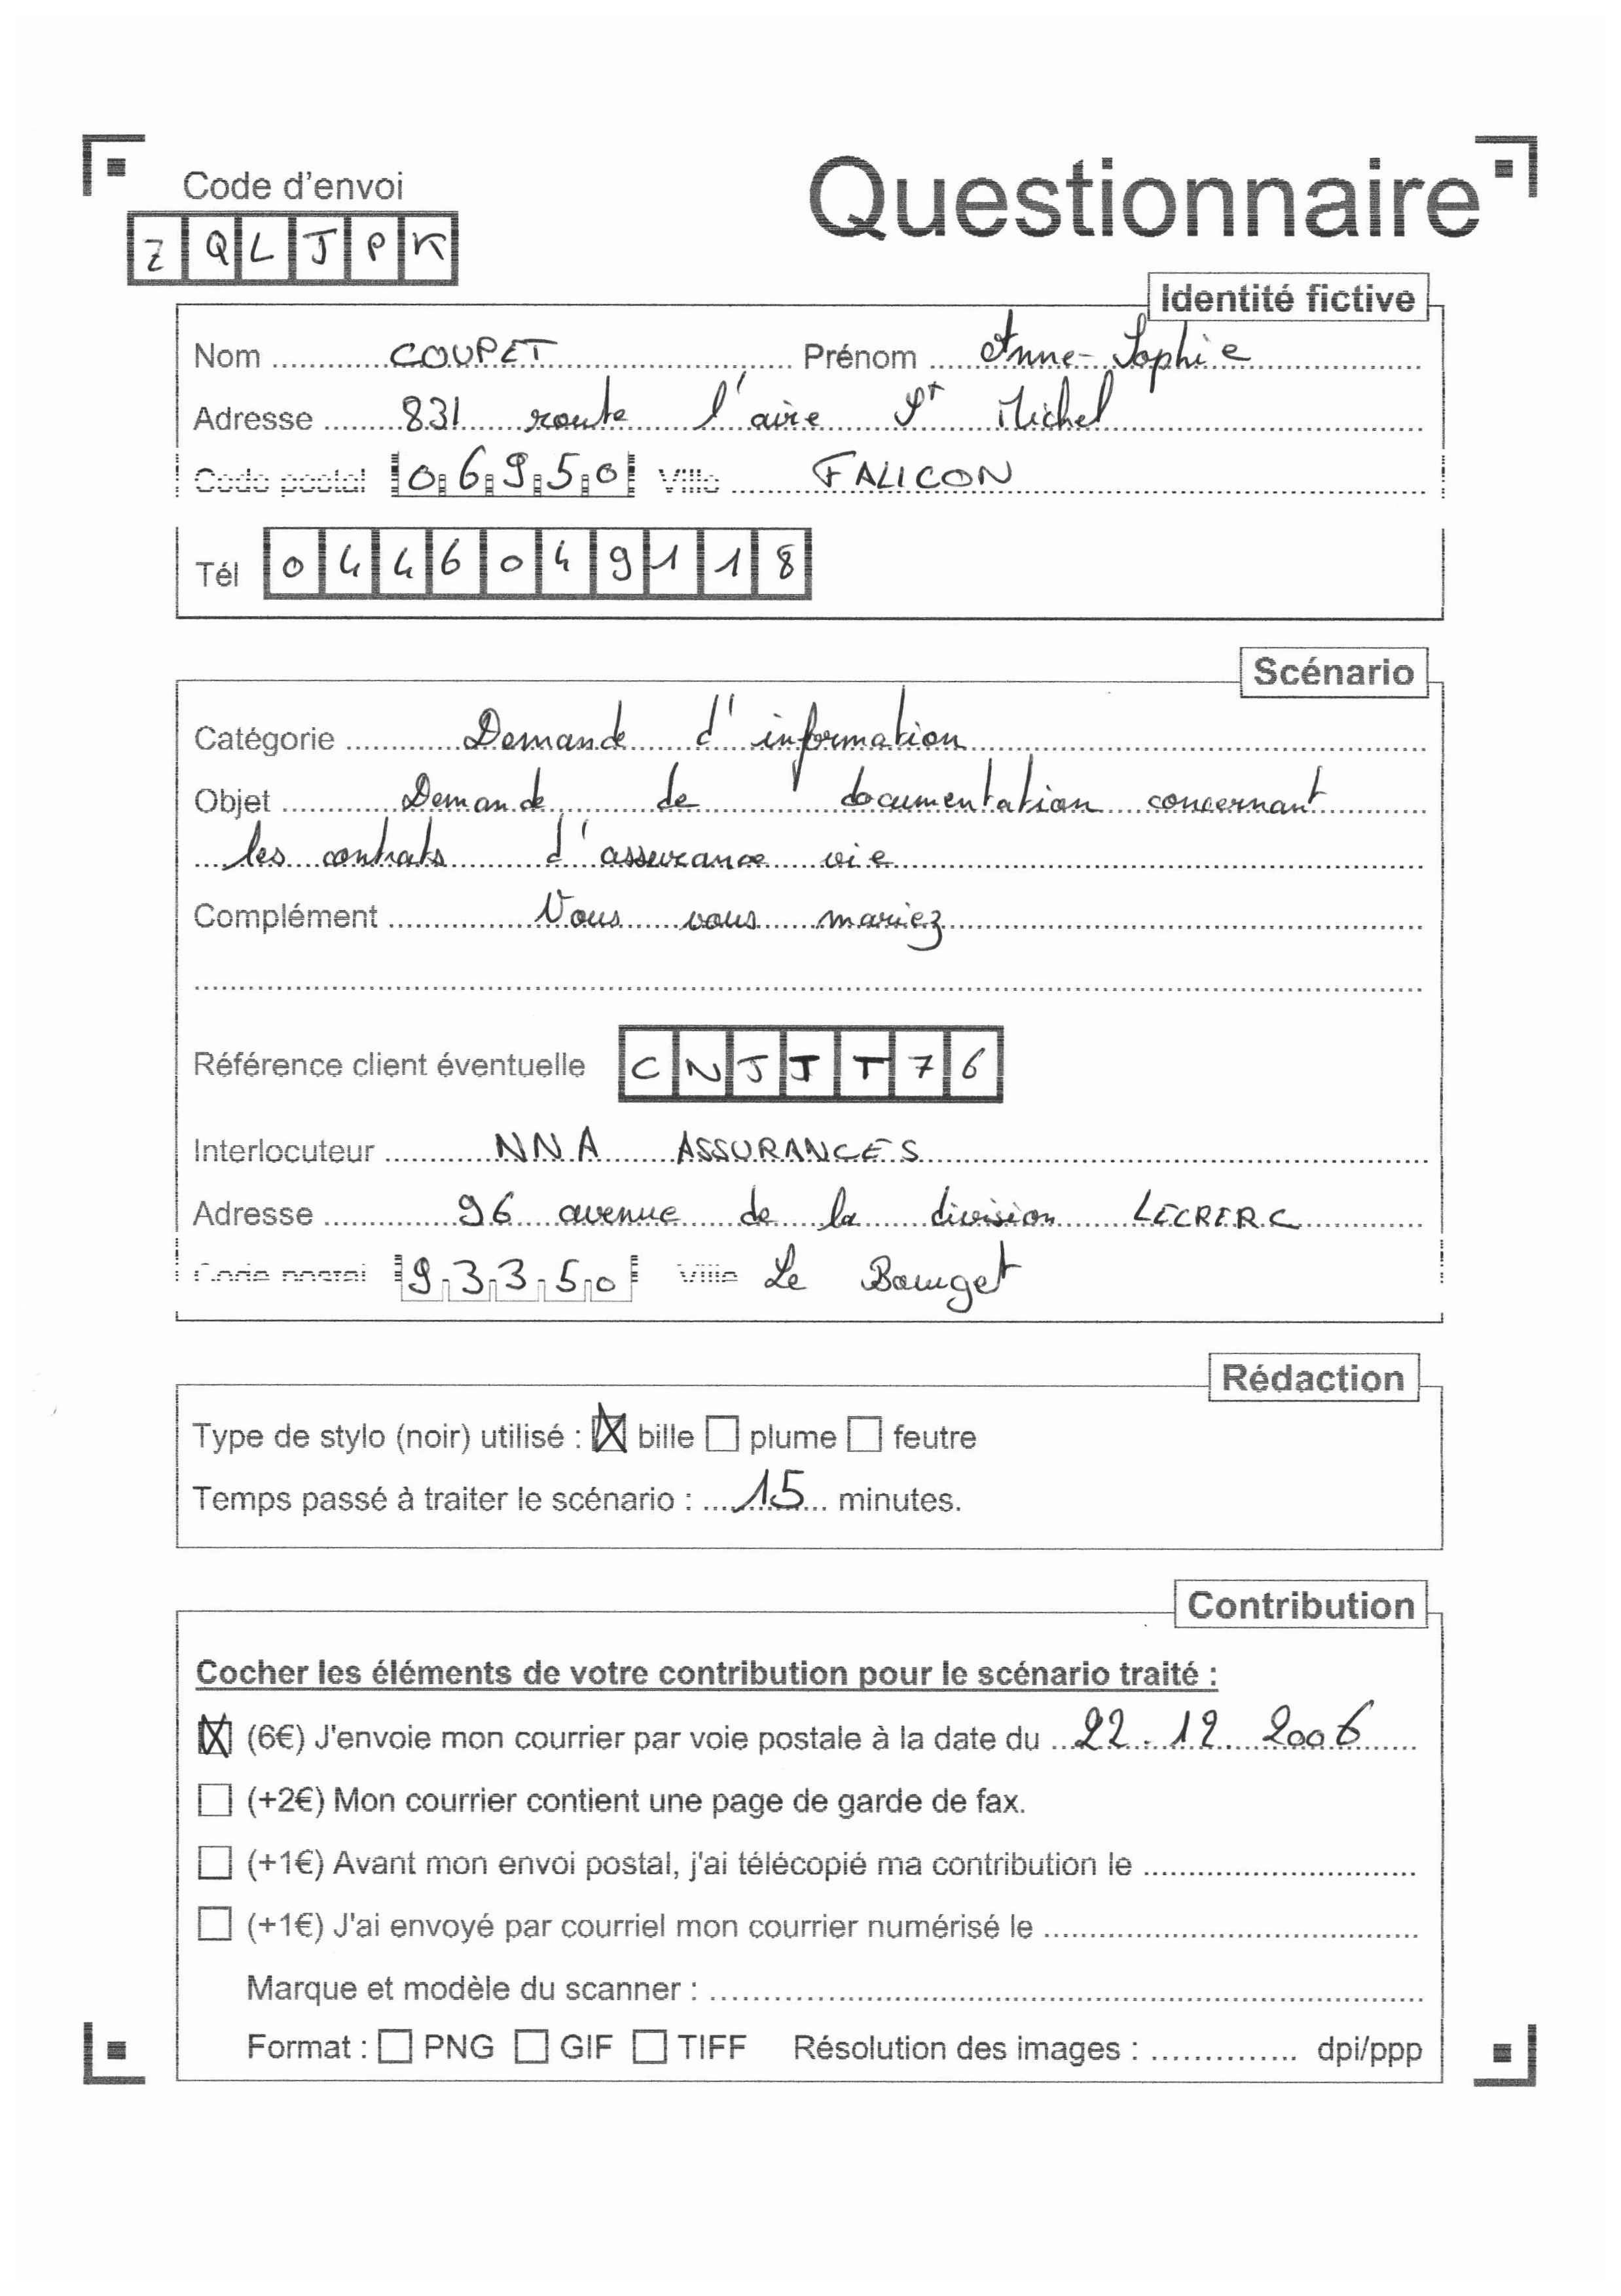 Code d'envoi
Questionnaire
Z Q L J P K
Identité fictive
Nom ............ COUPET ............ Prénom ...... Anne-Sophie
Adresse ........ 831 route l'aire St Michel
Code postal 0 6 9 5 0 Ville ........ FALICON
Tél 0 4 4 6 0 4 9 1 1 8
Scénario
Catégorie ............ Demande d'information
Objet ............ Demande de documentation concernant
les contrats d'assurance vie
Complément ............ Vous vous mariez
Référence client éventuelle C N J J T 7 6
Interlocuteur ............ NNA ASSURANCES
Adresse ............ 96 avenue de la division LECRERC
Code postal 9 3 3 5 0 Ville Le Bourget
Rédaction
Type de stylo (noir) utilisé : ☒ bille ☐ plume ☐ feutre
Temps passé à traiter le scénario : .... 15 .... minutes.
Contribution
Cocher les éléments de votre contribution pour le scénario traité :
☒ (6€) J'envoie mon courrier par voie postale à la date du ... 22.12.2006
☐ (+2€) Mon courrier contient une page de garde de fax.
☐ (+1€) Avant mon envoi postal, j'ai télécopié ma contribution le ............
☐ (+1€) J'ai envoyé par courriel mon courrier numérisé le ............
Marque et modèle du scanner : ............
Format : ☐ PNG ☐ GIF ☐ TIFF Résolution des images : ............ dpi/ppp